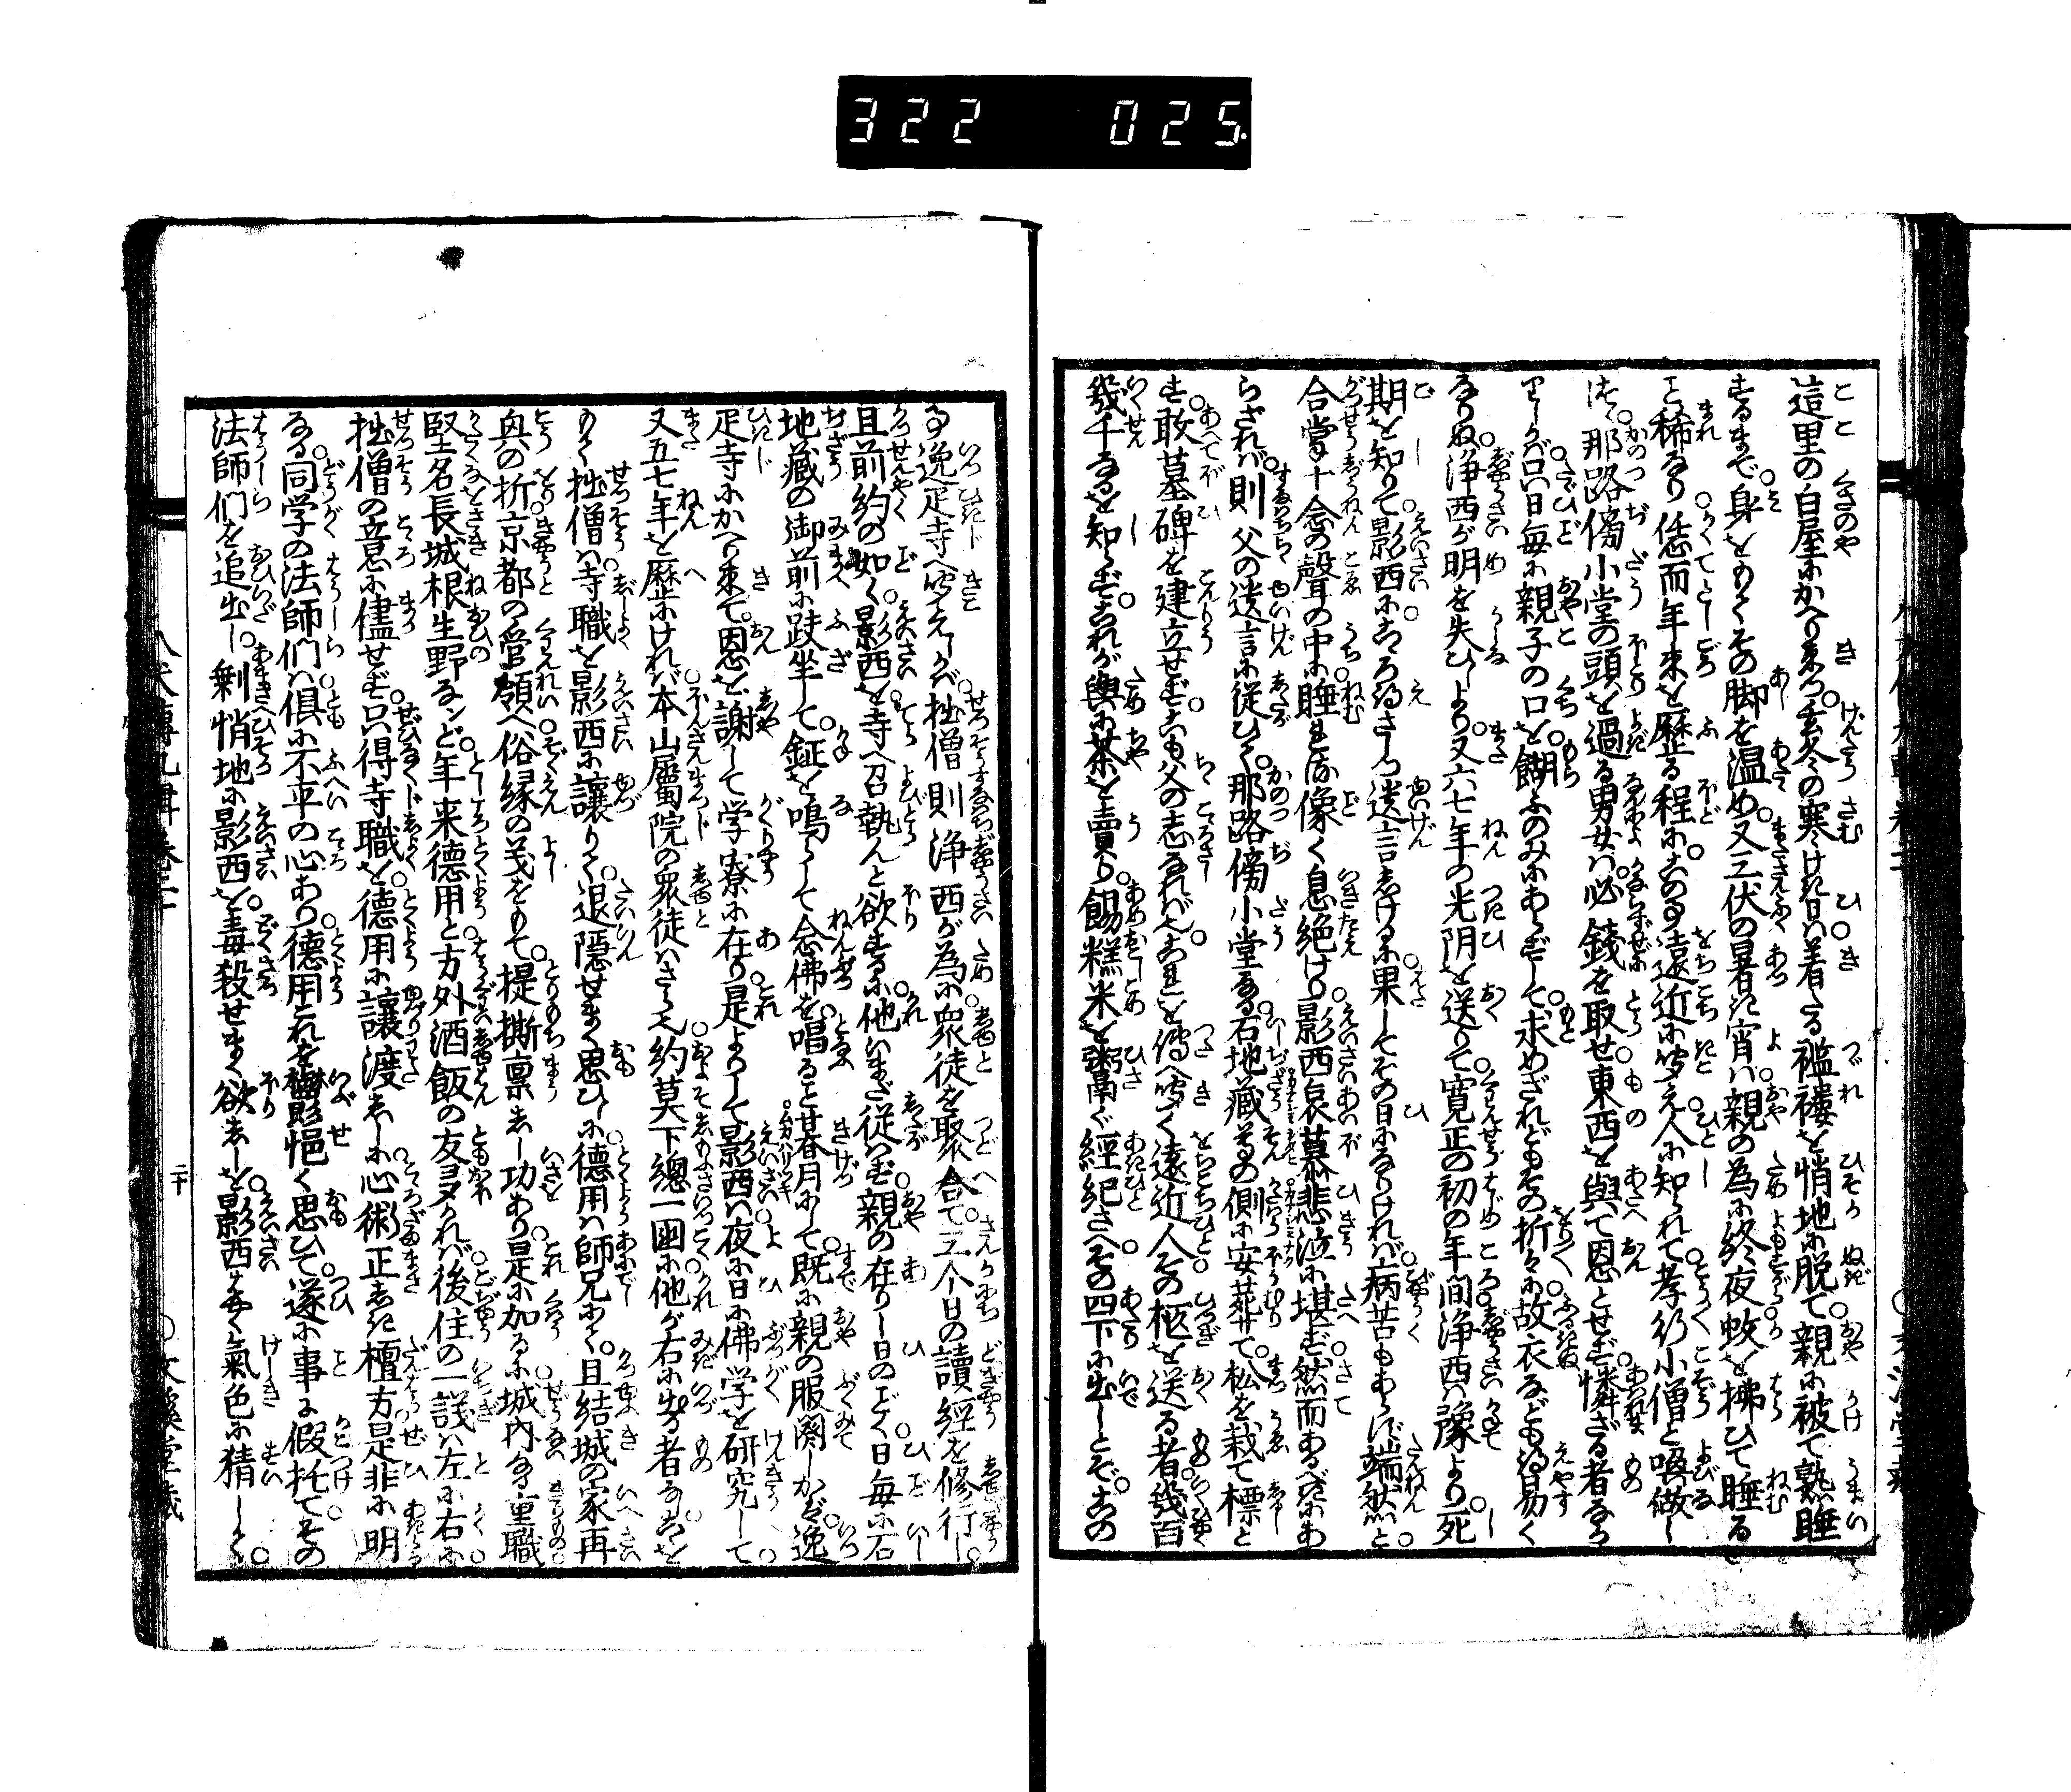 322 025
這里の白屋にかへり来つ。玄冬の寒けき日は着たる襤褸を悄地に脱て親に被て熟睡
するまで。身をもてその脚を温め。又三伏の暑き宵は親の為に終夜蚊を拂ひて睡る
こと稀なり。恁而年来を歴る程に。この事遠近に聞え人に知られて孝行小僧と喚做し
つゝ。那路傍小堂の頭を過る男女は。必銭を取せ東西を與て恩とせず憐ざる者なか
りしかば。只日毎に親子の口を餬ふのみにあらずして求めざれどもその折々に故衣なども得易く
なりぬ。浄西が明を失ひしより。又六七年の光阴を送りて寛正の初の年間浄西は豫より死
期を知りて影西にこゝろ得さする遺言しけるに果してその日になりければ病苦もあらず端然と
合掌十念の聲の中に睡る像く息絶けり。影西哀慕悲泣に堪ず。然而あるべきにあ
らざれば則父の遺言に従ひて。那路傍小堂なる石地藏尊の側に安葬て。松を栽て標と
す。敢墓碑を建立せず。こも父の志なればなり。これを傳へ聞く遠近人その柩を送る者幾百
幾千なるを知らず。これが與に茶を賣り餳糕米を粥ぐ經紀さへその四下に出しとぞ。この
事逸疋寺へ聞えしかば。拙僧則浄西が為に衆徒を聚合て三个日の讀經を修行し。
且前約の如く影西を寺へ召執んと欲するに他はまだ従はず。親の在りし日のごとく日毎に石
地藏の御前に趺坐して鉦を鳴らして念佛を唱ると暮月にして。既に親の服闋しかば逸
疋寺にかへり来て。恩を謝して学寮に在り。是よりして影西は夜に日に佛学を研究して
又五七年を歴にければ本山屬院の衆徒はさらなり約莫下總一國に他が右に出る者なし。こを
もて拙僧は寺職を影西に讓りて退隠せまく思ひしに德用は師兄にて。且結城の家再
興の折京都の管領へ俗縁の義をもて。提撕稟しゝ功あり。是に加るに城内なる重職
堅名長城根生野なンど年来德用と方外酒飯の友ヌメれば後住の一議は左に右に
拙僧の意に儘せず。只得寺職を德用に讓渡しゝに心術正しき檀方是非に明
なる。同学の法師們は倶に不平の心あり。德用これを欝悒く思ひて遂に事に假托てその
法師們を追出し。剰悄地に影西を毒殺せまく欲しゝを影西早く氣色に猜して。
二十